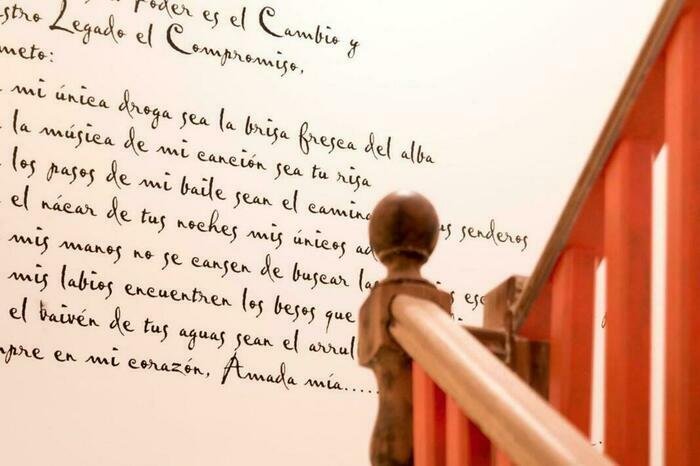 Poder es el Cambio y
stro Legado el Compromiso,
meto:
mi única droga sea la brisa fresca del alba
la música de mi canción sea tu risa
los pasos de mi baile sean el camina us senderos
el nácar de tus noches mis únicos ad
mis manos no se cansen de buscar la s ese
mis labios encuentren los besos que
el vaivén de tus aguas sean el arrul
mpre en mi corazón, Amada mía.....